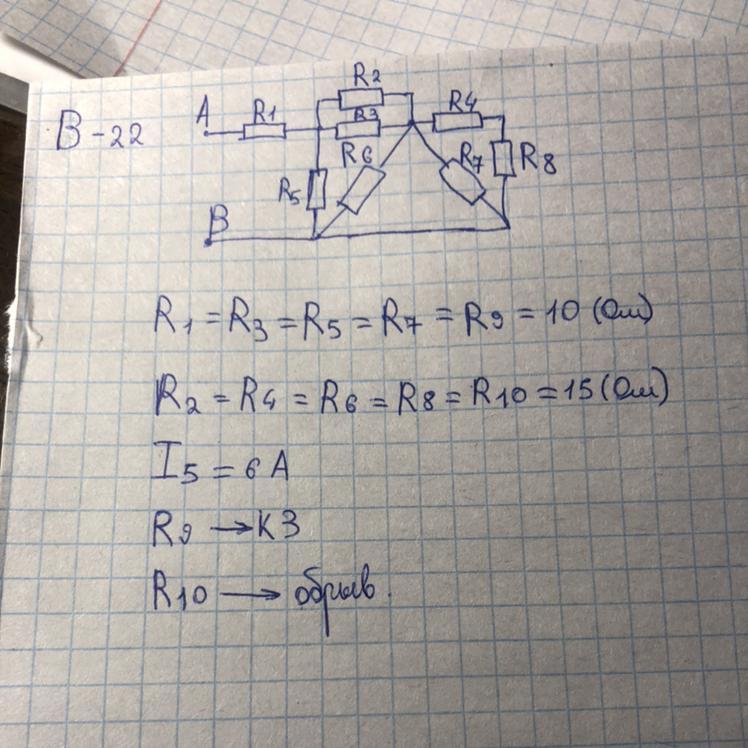 В-22
A R1 R2 R3 R4
R6 R7 R8
R5
B
R1 = R3 = R5 = R7 = R9 = 10 (Ом)
R2 = R4 = R6 = R8 = R10 = 15 (Ом)
I5 = 6 А
R9 → КЗ
R10 → обрыв.